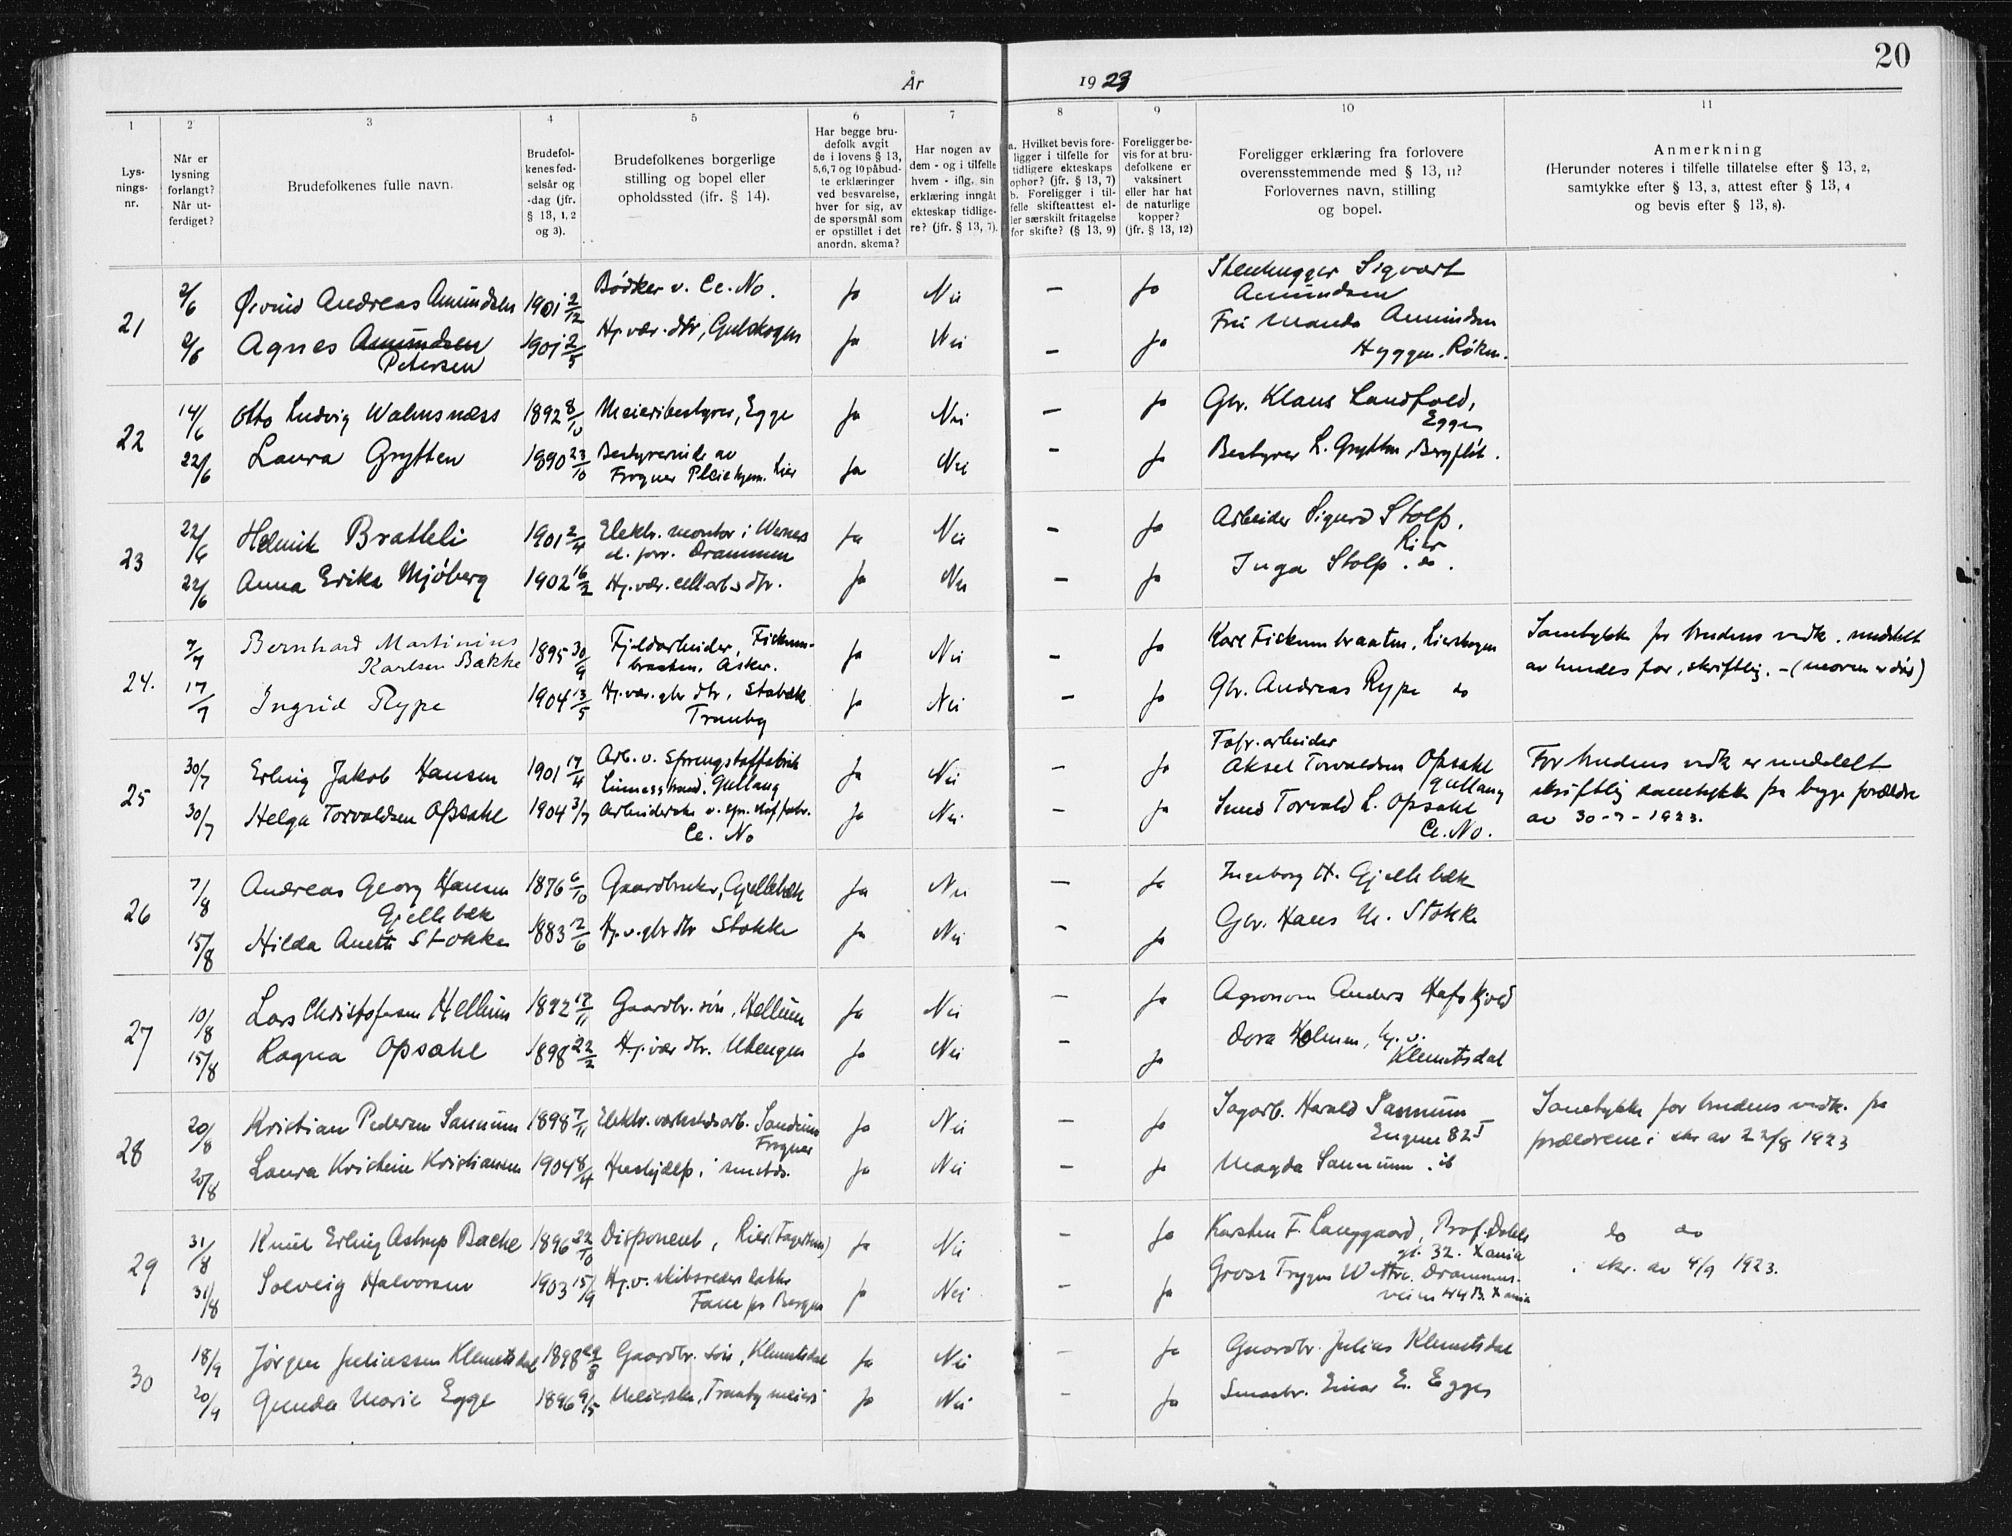 20
År 1923
1 2 3 4 5 6 7 8 9 10 11
Lys-
nings-
nr.
Når er
lysning
forlangt?
Når ut-
ferdiget?
Brudefolkenes fulle navn.
Brudefol-
kenes fød-
selsår og
-dag (jfr.
§ 13, 1, 2
og 3).
Brudefolkenes borgerlige
stilling og bopel eller
opholdssted (jfr. § 14).
Har begge bru-
defolk avgit
de i lovens § 13,
5, 6, 7 og 10 påbud-
te erklæringer
ved besvarelse,
hver for sig, av
de spørsmål som
er opstillet i det
anordn. skema?
Har nogen av
dem - og i tilfelle
hvem - iflg. sin
erklæring inngåt
ekteskap tidlige-
re? (jfr. § 13, 7).
a. Hvilket bevis fore-
ligger i tilfelle for
tidligere ekteskaps
ophør? (jfr. § 13, 7)
b. Foreligger i til-
felle skifteattest el-
ler særskilt fritagelse
for skifte? (§ 13, 9)
Foreligger be-
vis for at bru-
defolkene er
vaksinert
eller har hat
de naturlige
kopper?
(jfr. § 13, 12)
Foreligger erklæring fra forlovere
overensstemmende med § 13, 11?
Forlovernes navn, stilling
og bopel.
Anmerkning
(Herunder noteres i tilfelle tillatelse efter § 13, 2,
samtykke efter § 13, 3, attest efter § 13, 4
og bevis efter § 13, 8).
21
2/6 Øivind Andreas Amundsen 1901 2/12 Bødker v. Ce. No. Ja Nei — Ja Stenhugger Sigvart
Amundsen
2/6 Agnes Amundsen 1901 2/5 Hj. vær. dtr, Gulskogen Ja Nei — Ja Fru Manda Amundsen
Petersen Hyggen. Røken.
22
14/6 Otto Ludvig Walmsnæss 1892 8/10 Meieribestyrer, Egge Ja Nei — Ja Gbr. Klaus Landfald,
Egge
22/6 Laura Grytten 1890 23/10 Bestyrerinde av Ja Nei — Ja Bestyrer L. Grytten, Bergflöt.
Frogner Pleiehjem. Lier
23
22/6 Helmik Bratteli 1901 2/4 Elektr. montør i Wernes Ja Nei — Ja Arbeider Sigurd Stolp,
el. forr. Drammen Lier
22/6 Anna Erika Mjöberg 1902 16/2 Hj. vær. cell arb. dtr. Ja Nei — Ja Inga Stolp. do.
24.
7/7 Bernhard Martinius 1895 30/9 Fjeldarbeider, Fiskum- Ja Nei — Ja Karl Fiskumbraaten, Lierskogen
Karlsen Bakke braaten, Asker.
Samtykke for brudens vedk. meddelt
av hendes far, skriftlig. - (moren er død)
17/7 Ingrid Rype 1904 13/5 Hj. vær. gbr dtr, Stabæk Ja Nei — Ja Gbr. Andreas Rype do
Tranby
25
30/7 Erling Jakob Hansen 1901 17/4 Arb. v. Sprengstoffabrik Ja Nei — Ja Fabr. arbeider
Linnesstrand, Gullaug Aksel Torvaldsen Opsahl
Gullaug
For brudens vedk er meddelt
skriftlig samtykke fra begge forældre
av 30-7-1923.
30/7 Helga Torvaldsen Opsahl 1904 3/7 Arbeiderske v. spr. stof fabr. Ja Nei — Ja Smed Torvald L. Opsahl
Ce. No Ce. No.
26
7/8 Andreas Georg Hansen 1876 6/10 Gaardbruker, Gjellebæk Ja Nei — Ja Ingeborg H. Gjellebæk
Gjellebæk
15/8 Hilda Anette Stokke 1883 12/6 Hj. v. gbr dtr Stokke Ja Nei — Ja Gbr. Hans M. Stokke
27
10/8 Lars Christofersen Hellum 1892 17/11 Gaardbr. søn, Hellum Ja Nei — Ja Agronom Anders Hafskjold
15/8 Ragna Opsahl 1898 22/2 Hj. vær dtr. Uhengen Ja Nei — Ja Dora Holmen, hj. v.
Klemetsdal
28
20/8 Kristian Pedersen Sannum 1898 7/11 Elektr. verkstedsarb. Sandum Ja Nei — Ja Sagarb. Harald Sannum
Frogner Engene 82 I
Samtykke for brudens vedk. fra
forældrene i skr av 22/8 1923
20/8 Laura Kristine Kristiansen 1904 8/11 Hushjælp i smsteds. Ja Nei — Ja Magda Sannum. ib
29
31/8 Knut Erling Astrup Bache 1896 22/10 Disponent, Lier (Fagerheim) Ja Nei — Ja Karsten F. Langgaard, Prof. Dahls
gt. 32. Xania
do do
i skr. av 4/9 1923.
31/8 Solveig Halvorsen 1903 15/9 Hj. v. skibsreder datter Ja Nei — Ja Gross Trygve Wettre. Drammens-
Fane pr Bergen veien 44 B. Xania
30
18/9 Jørgen Juliussen Klemetsdal 1898 29/8 Gaardbr. søn, Klemetsdal Ja Nei — Ja Gaardbr. Julius Klemetsdal
20/9 Gunda Marie Egge 1896 9/5 Meierske, Tranby meieri Ja Nei — Ja Smaabr. Einar E. Egge